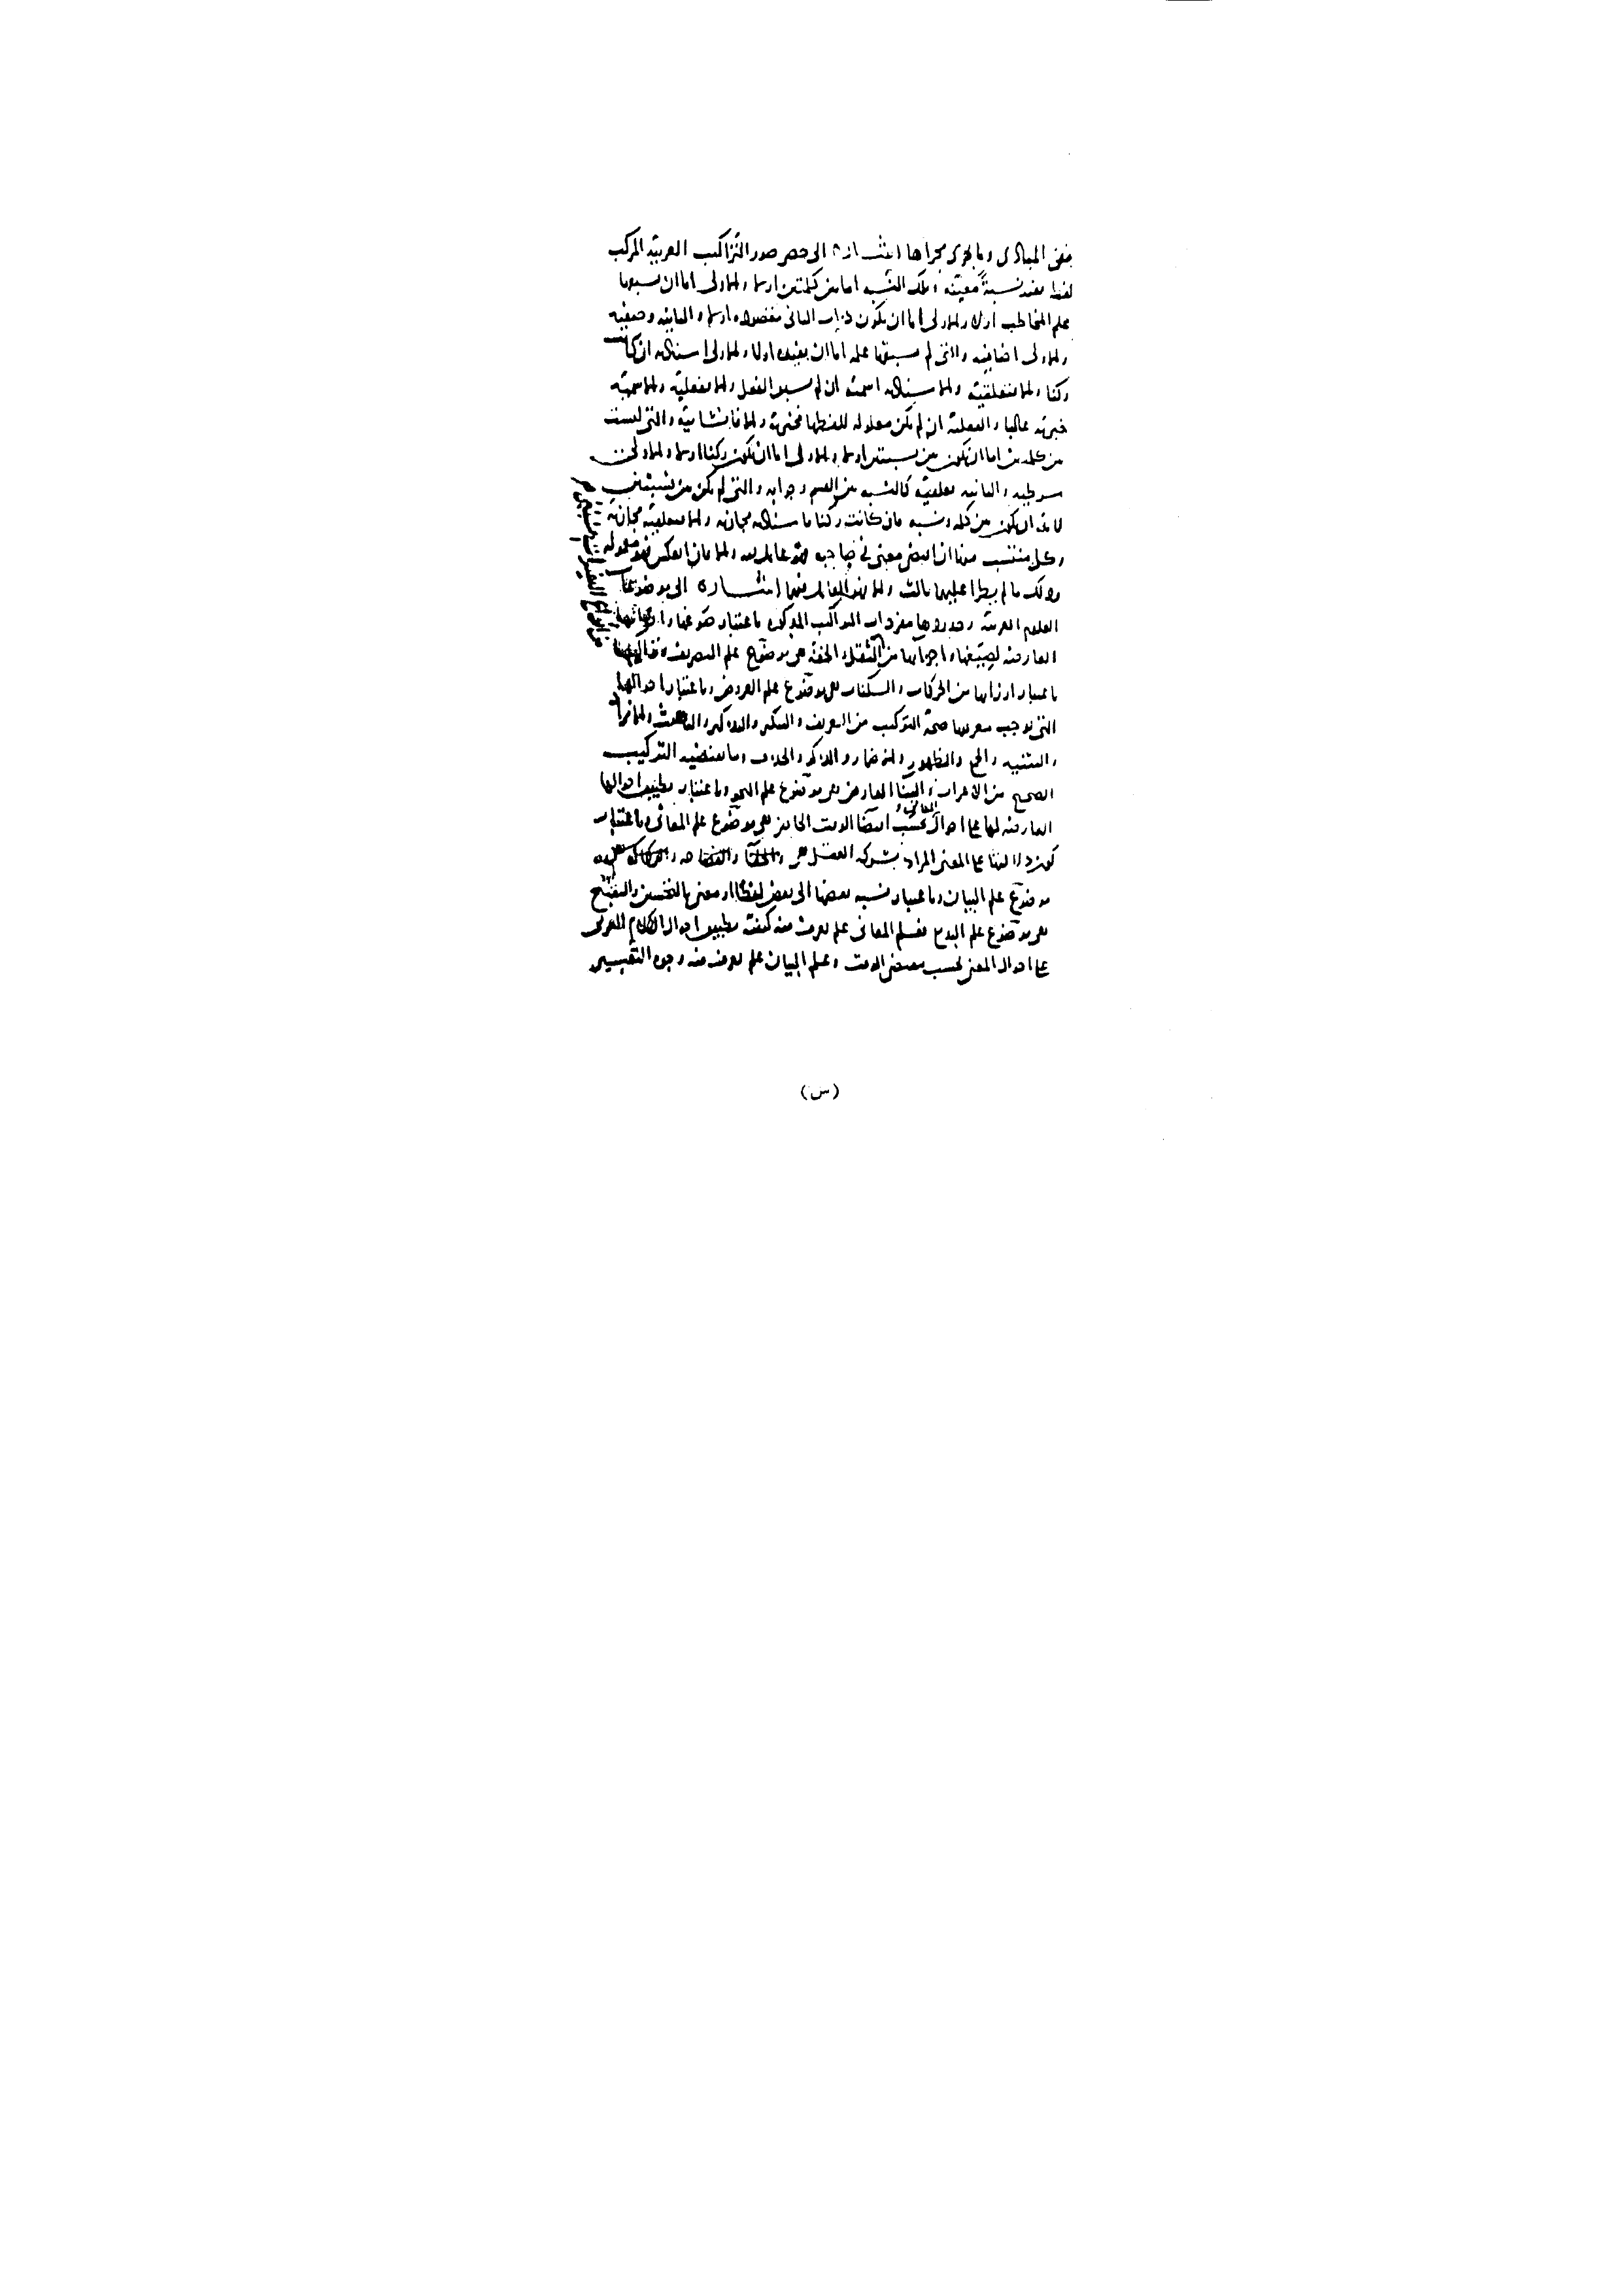 بعض المبادى وما يجرى مجراها اشارة الى حصر صور التراكيب العربية المركب
لفظ يفيد نسبة معينة وتلك النسبة اما بين كلمتين او لا والاولى اما ان يسبقها
علم المخاطب او لا والاولى اما ان يكون ذات الثانى مقصودة او لا والثانية وصفية
والاولى اضافية والتى لم يسبقها علمه اما ان يفيده اولا والاولى اسنادية ان كانت
ركنا والا فتعلقية والاسنادية اسمية ان لم يسبق الفعل والا ففعلية والاسمية
خبرية غالبا والفعلية ان لم يكن معلوله للفظها فخبرية والا فانشائية والتى ليست
من كلمتين اما ان تكون بين نسبتين او لا والاولى اما ان تكون ركنا او لا والاولى
شرطية والثانية تعلقية كالنسبة بين القسم وجوابه والتى لم تكن بين نسبتين
لا بد ان تكون بين كلمة ونسبة فان كانت ركنا فاسنادية مجازية والا فتعلقية مجازية
وكل منتسب منها ان اقتضى معنى فى صاحبه فهو عامل فيه والا فان انعكس فهو معموله
وذلك ما لم يطرأ عليهما ثالث والا فهو العامل فيهما اشارة الى موضوعات
العلوم العربية وحدودها مفردات التراكيب المذكورة باعتبار صوغها واحوالها
العارضة لصيغها واجزائها من الثقل والخفة هى موضوع علم التصريف
باعتبار اوزانها من الحركات والسكنات هى موضوع علم العروض وباعتبار احوالها
التى توجب معرفتها صحة التركيب من التعريف والتنكير والتذكير والتأنيث والافراد
والتثنية والجمع والظهور والاضمار والذكر والحذف وما يقتضيه التركيب
الصحيح من الاعراب والبناء العارض هى موضوع علم النحو وباعتبار تطبيق احوالها
العارضة لها على احوال المعانى بحسب اقتضاء الوقت الحاضر هى موضوع علم المعانى وباعتبار
المعنى المراد بشركة العقل
موضوع علم البيان وباعتبار نسبة بعضها الى بعض لفظا او معنى بالتحسين والتقبيح
هى موضوع علم البديع فعلم المعانى علم يعرف منه كيفية تطبيق احوال الكلام العربى
على احوال المعنى بحسب مقتضى الوقت وعلم البيان علم يعرف منه وجوه التعبير
(س)